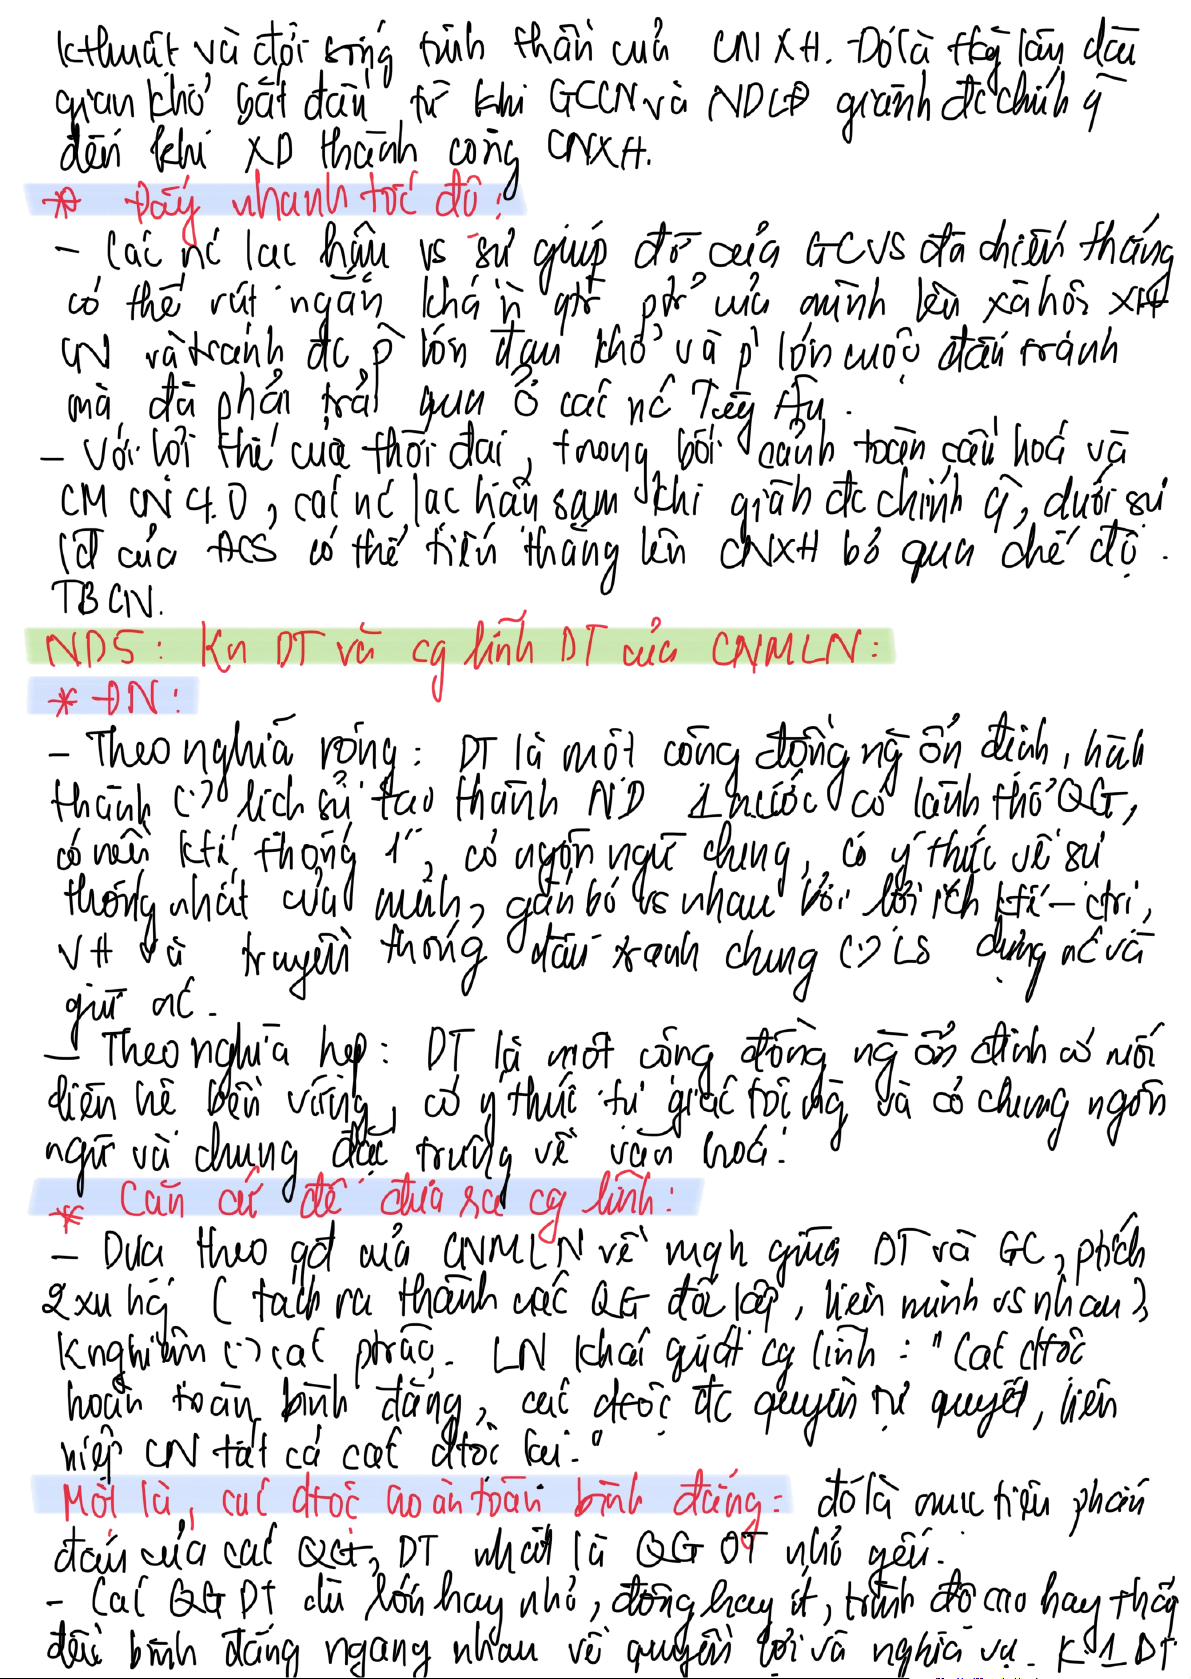 kthuật và đời sống tinh thần của CNXH. Đó là tkỳ lâu dài
gian khổ bắt đầu từ khi GCCN và NDLĐ giành đc chính q̀
đến khi XD thành công CNXH.
* Đẩy nhanh tốc độ:
- Các nc lạc hậu vs sự giúp đỡ của GCVS đã chiến thắng
có thể rút ngắn khá ǹ qtr ptr của mình lên xã hội XH
CN và tránh đc p̀ lớn đau khổ và p̀ lớn cuộc đấu tranh
mà đã phải trải qua ở các nc Tây Âu.
- Với lợi thế của thời đại, trong bối cảnh toàn cầu hoá và
CM CN 4.0, các nc lạc hậu sau khi giành đc chính q̀, dưới sự
lđ của ĐCS có thể tiến thẳng lên CNXH bỏ qua chế độ
TBCN.
ND5: Kn DT và cg lĩnh DT của CNMLN:
* ĐN:
- Theo nghĩa rộng: DT là một cộng đồng ng̀ ổn định, hình
thành (:) lịch sử tạo thành ND 1 nước có lãnh thổ QG,
có nền ktế thống 1", có ngôn ngữ chung, có ý thức về sự
thống nhất của mình, gắn bó vs nhau bởi lợi ích ktế - ctrị,
VH và truyền thống đấu tranh chung (:) LS dựng nc và
giữ nc.
- Theo nghĩa hẹp: DT là một cộng đồng ng̀ ổn định có mối
liên hệ bền vững, có ý thức tự giác tộc ng̀ và có chung ngôn
ngữ và chung đặc trưng về văn hoá.
* Căn cứ để đưa ra cg lĩnh:
- Dựa theo qđ của CNMLN về mqh giữa DT và GC, ptích
2 xu hg (tách ra thành các QG độc lập, liên minh vs nhau),
k nghiệm (:) các ptrào. LN khái quát cg lĩnh: "Các dtộc
hoàn toàn bình đẳng, các dtộc đc quyền tự quyết, liên
hiệp CN tất cả các dtộc lại."
Một là, các dtộc hoàn toàn bình đẳng: đó là mục tiêu phấn
đấu của các QG, DT nhất là QG DT nhỏ yếu.
- Các QG DT dù lớn hay nhỏ, đông hay ít, trình độ cao hay thấp
đều bình đẳng ngang nhau về quyền lợi và nghĩa vụ. K 1 DT